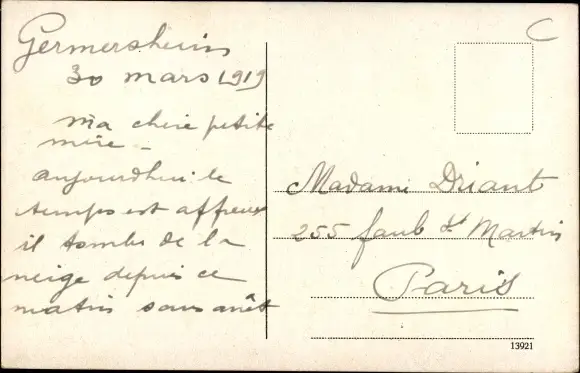 Germersheim
30 mars 1919
ma chère petite
mère -
aujourdhui le
temps est affreux
il tombe de la
neige depuis ce
matin sans arrêt
C
Madame Driant
255 faub St Martin
Paris
13921